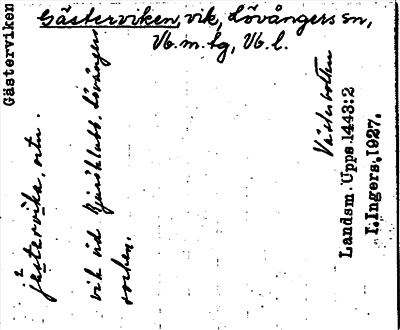 Gästerviken
Gästerviken, vik, Lövångers sn,
Vb. m. tg, Vb. l.
jästərvika, ortn.
vik vid Bjuröklubb, Lövångers
socken.
Västerbotten
Landsm. Upps. 1443:2
I. Ingers. 1927.